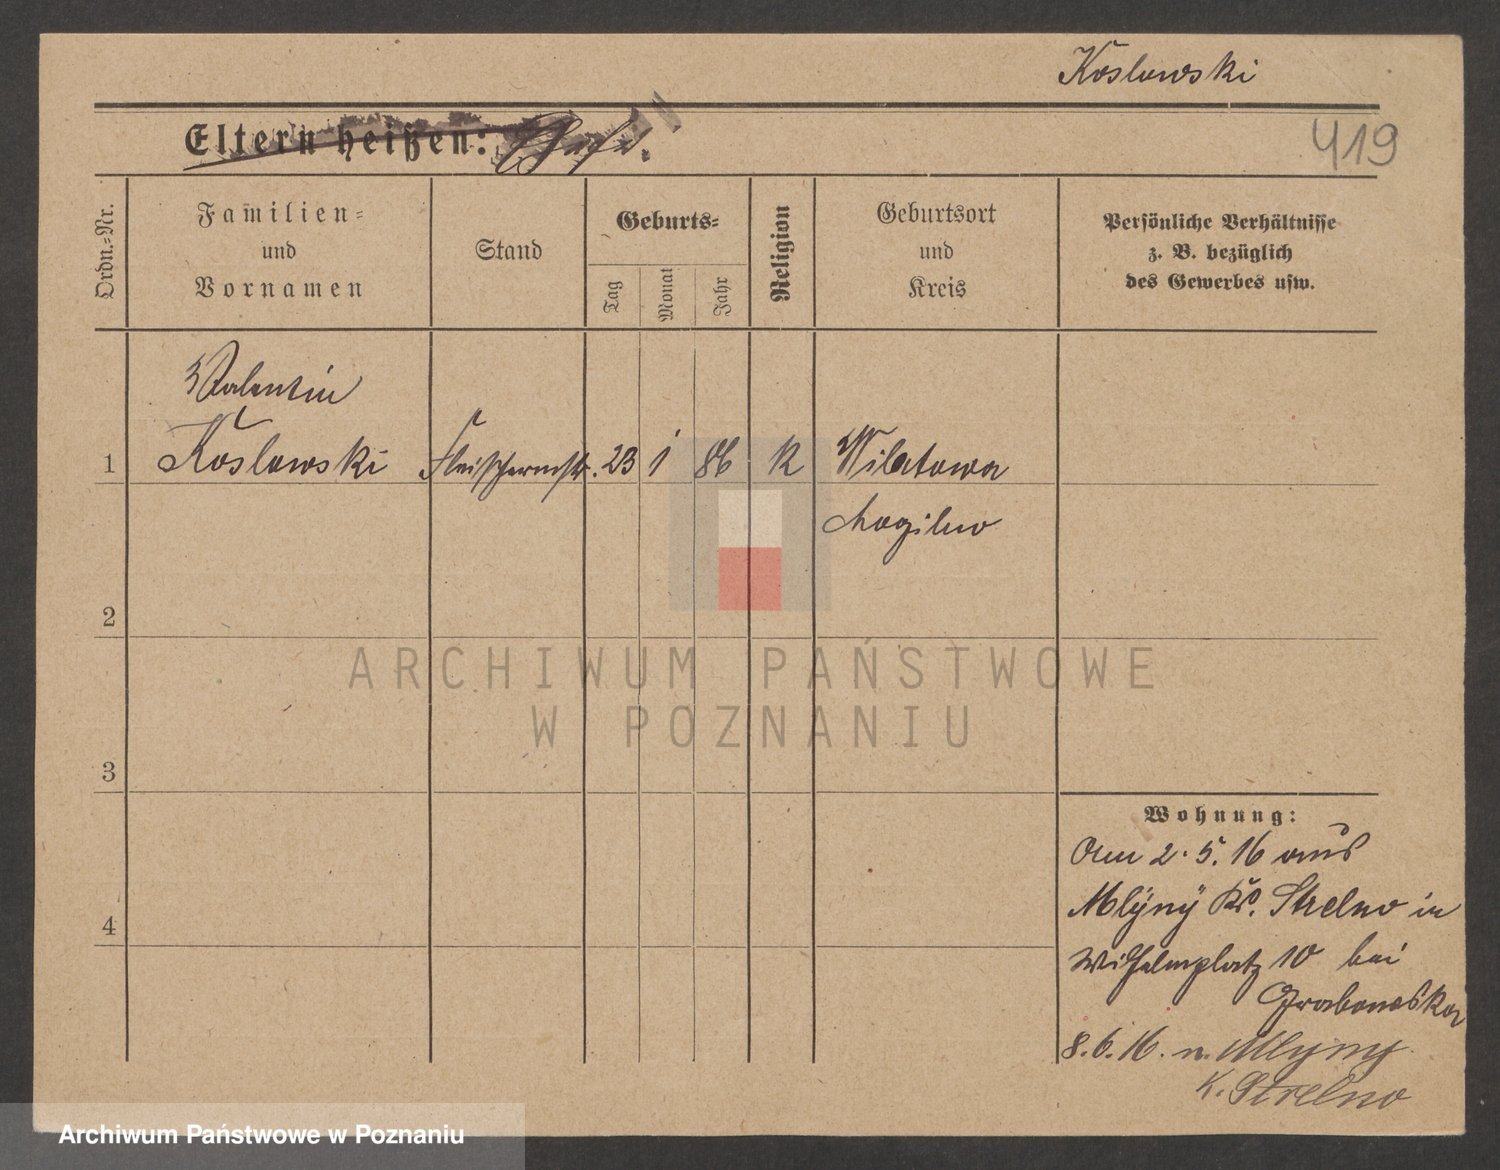 Koslowski
Eltern heißen:
419
Ordn.-Nr.
Familien-
und
Vornamen
Stand
Geburts-
Tag
Monat
Jahr
Religion
Geburtsort
und
Kreis
Persönliche Verhältnisse
z. B. bezüglich
des Gewerbes usw.
Valentin
1 Koslowski Fleischermstr. 23 1 86 K Wilatowa
Mogilno
2
ARCHIWUM PAŃSTWOWE
W POZNANIU
3
Wohnung:
Am 2.5.16 aus
Mlyny Kr. Strelno in
Wilhelmplatz 10 bei
4
8.6.16. n. Mlyny
K. Strelno
Archiwum Państwowe w Poznaniu